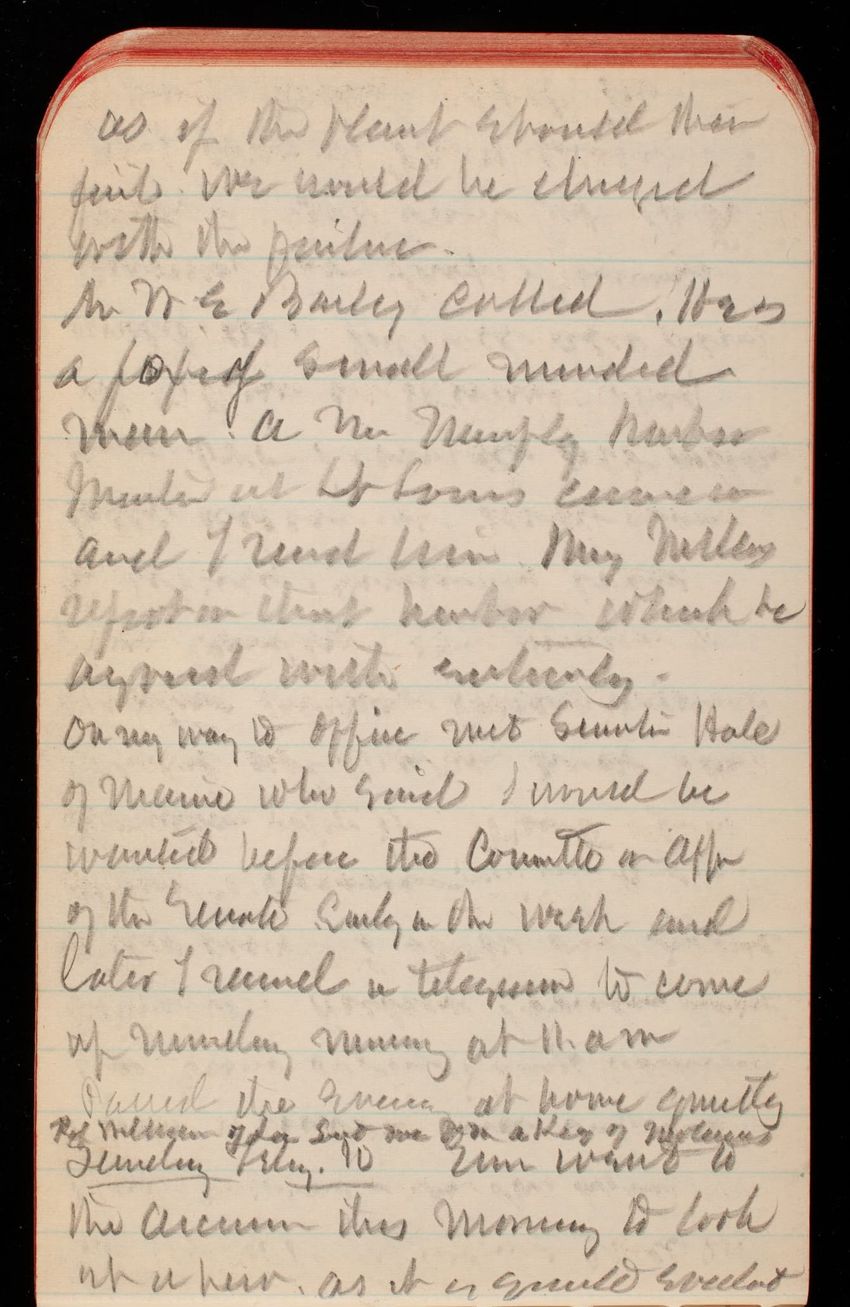 as if the plant should then
fail we would be charged
with the failure.
Mr W E Barley called. He is
a small minded
man. A Mr Murphy Harbor
Master at St Louis came in
and I read him Maj Millers
report on that harbor which he
agreed with entirely.
On my way to office met Senator Hale
of Maine who said I would be
wanted before the Committe on App
of the Senate Early in the week and
later I received a telegram to come
up Monday morning at 11 am
Passed the Evening at home quietly
of La Sent me a Keg of Molasses
Sunday Feby. 10 Em want to
the this Morning to look
at a as it is quite Evident